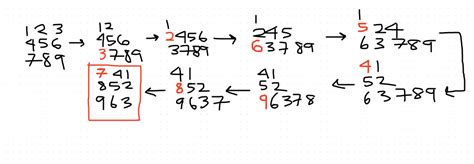 1 2 3
456
789
12
456
3789
1
2456
3789
1
245
63789
1
524
63789
41
52
63789
41
52
96378
41
852
9637
741
852
963